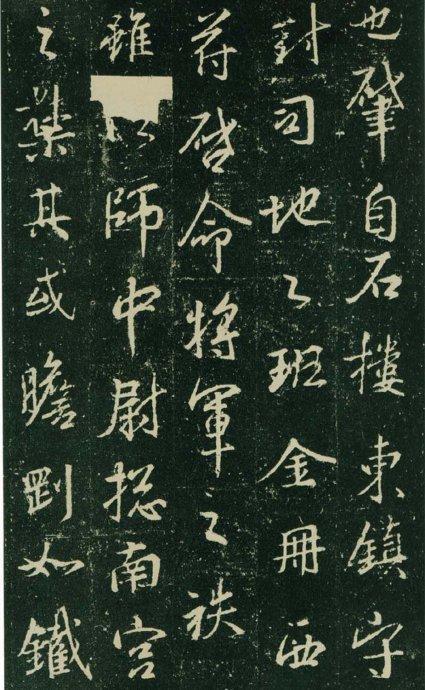 也肇自石樓東鎮守
封司地之班金冊西
苻啓命將軍之袟
雖以師中尉揔南宮
之榮其或瞻剛如鐵